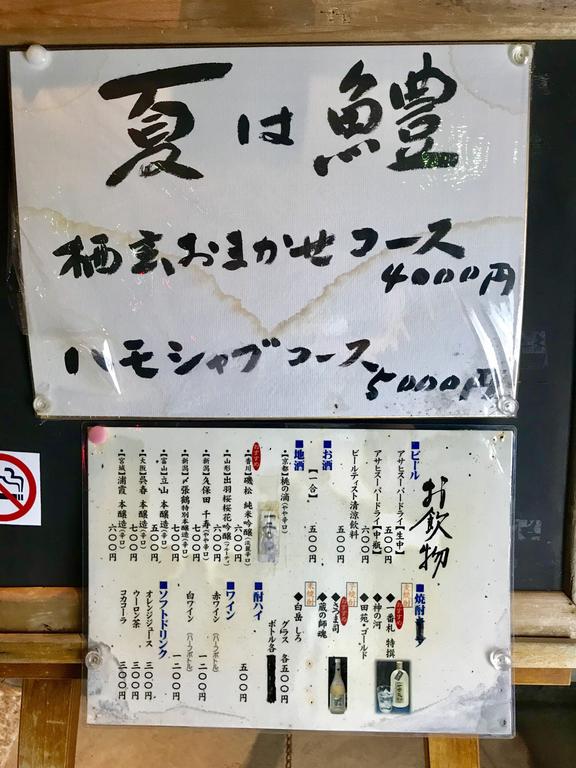 夏は鱧
栖玄おまかせコース
4000円
ハモシャブコース
5000円
お飲物
■ビール
アサヒスーパードライ【生中】
五〇〇円
アサヒスーパードライ【中瓶】
六〇〇円
ビールテイスト清涼飲料
五〇〇円
■お酒
【一合】
五〇〇円
■地酒
【京都】桃の滴(やや辛口)
おすすめ
【香川】磯松 純米吟醸(淡麗辛口)
六〇〇円
【山形】出羽桜桜花吟醸(フルーティ)
七〇〇円
【新潟】久保田 千寿(やや辛口)
七〇〇円
【新潟】〆張鶴特別本醸造(辛口)
七〇〇円
【富山】立山 本醸造(辛口)
五五〇円
【大阪】呉春 本醸造(辛口)
七〇〇円
【宮城】浦霞 本醸造(辛口)
六〇〇円
■焼酎
麦焼酎
おすすめ
◆一番札 特撰
◆神の河
◆田苑・ゴールド
芋焼酎
おすすめ
◆さつま司
◆蔵の師魂
米焼酎
◆白岳 しろ
グラス 各五〇〇円
ボトル各
■酎ハイ
五〇〇円
■ワイン
赤ワイン(ハーフボトル)
一二〇〇円
白ワイン(ハーフボトル)
一二〇〇円
■ソフトドリンク
オレンジジュース
三〇〇円
ウーロン茶
三〇〇円
コカコーラ
三〇〇円